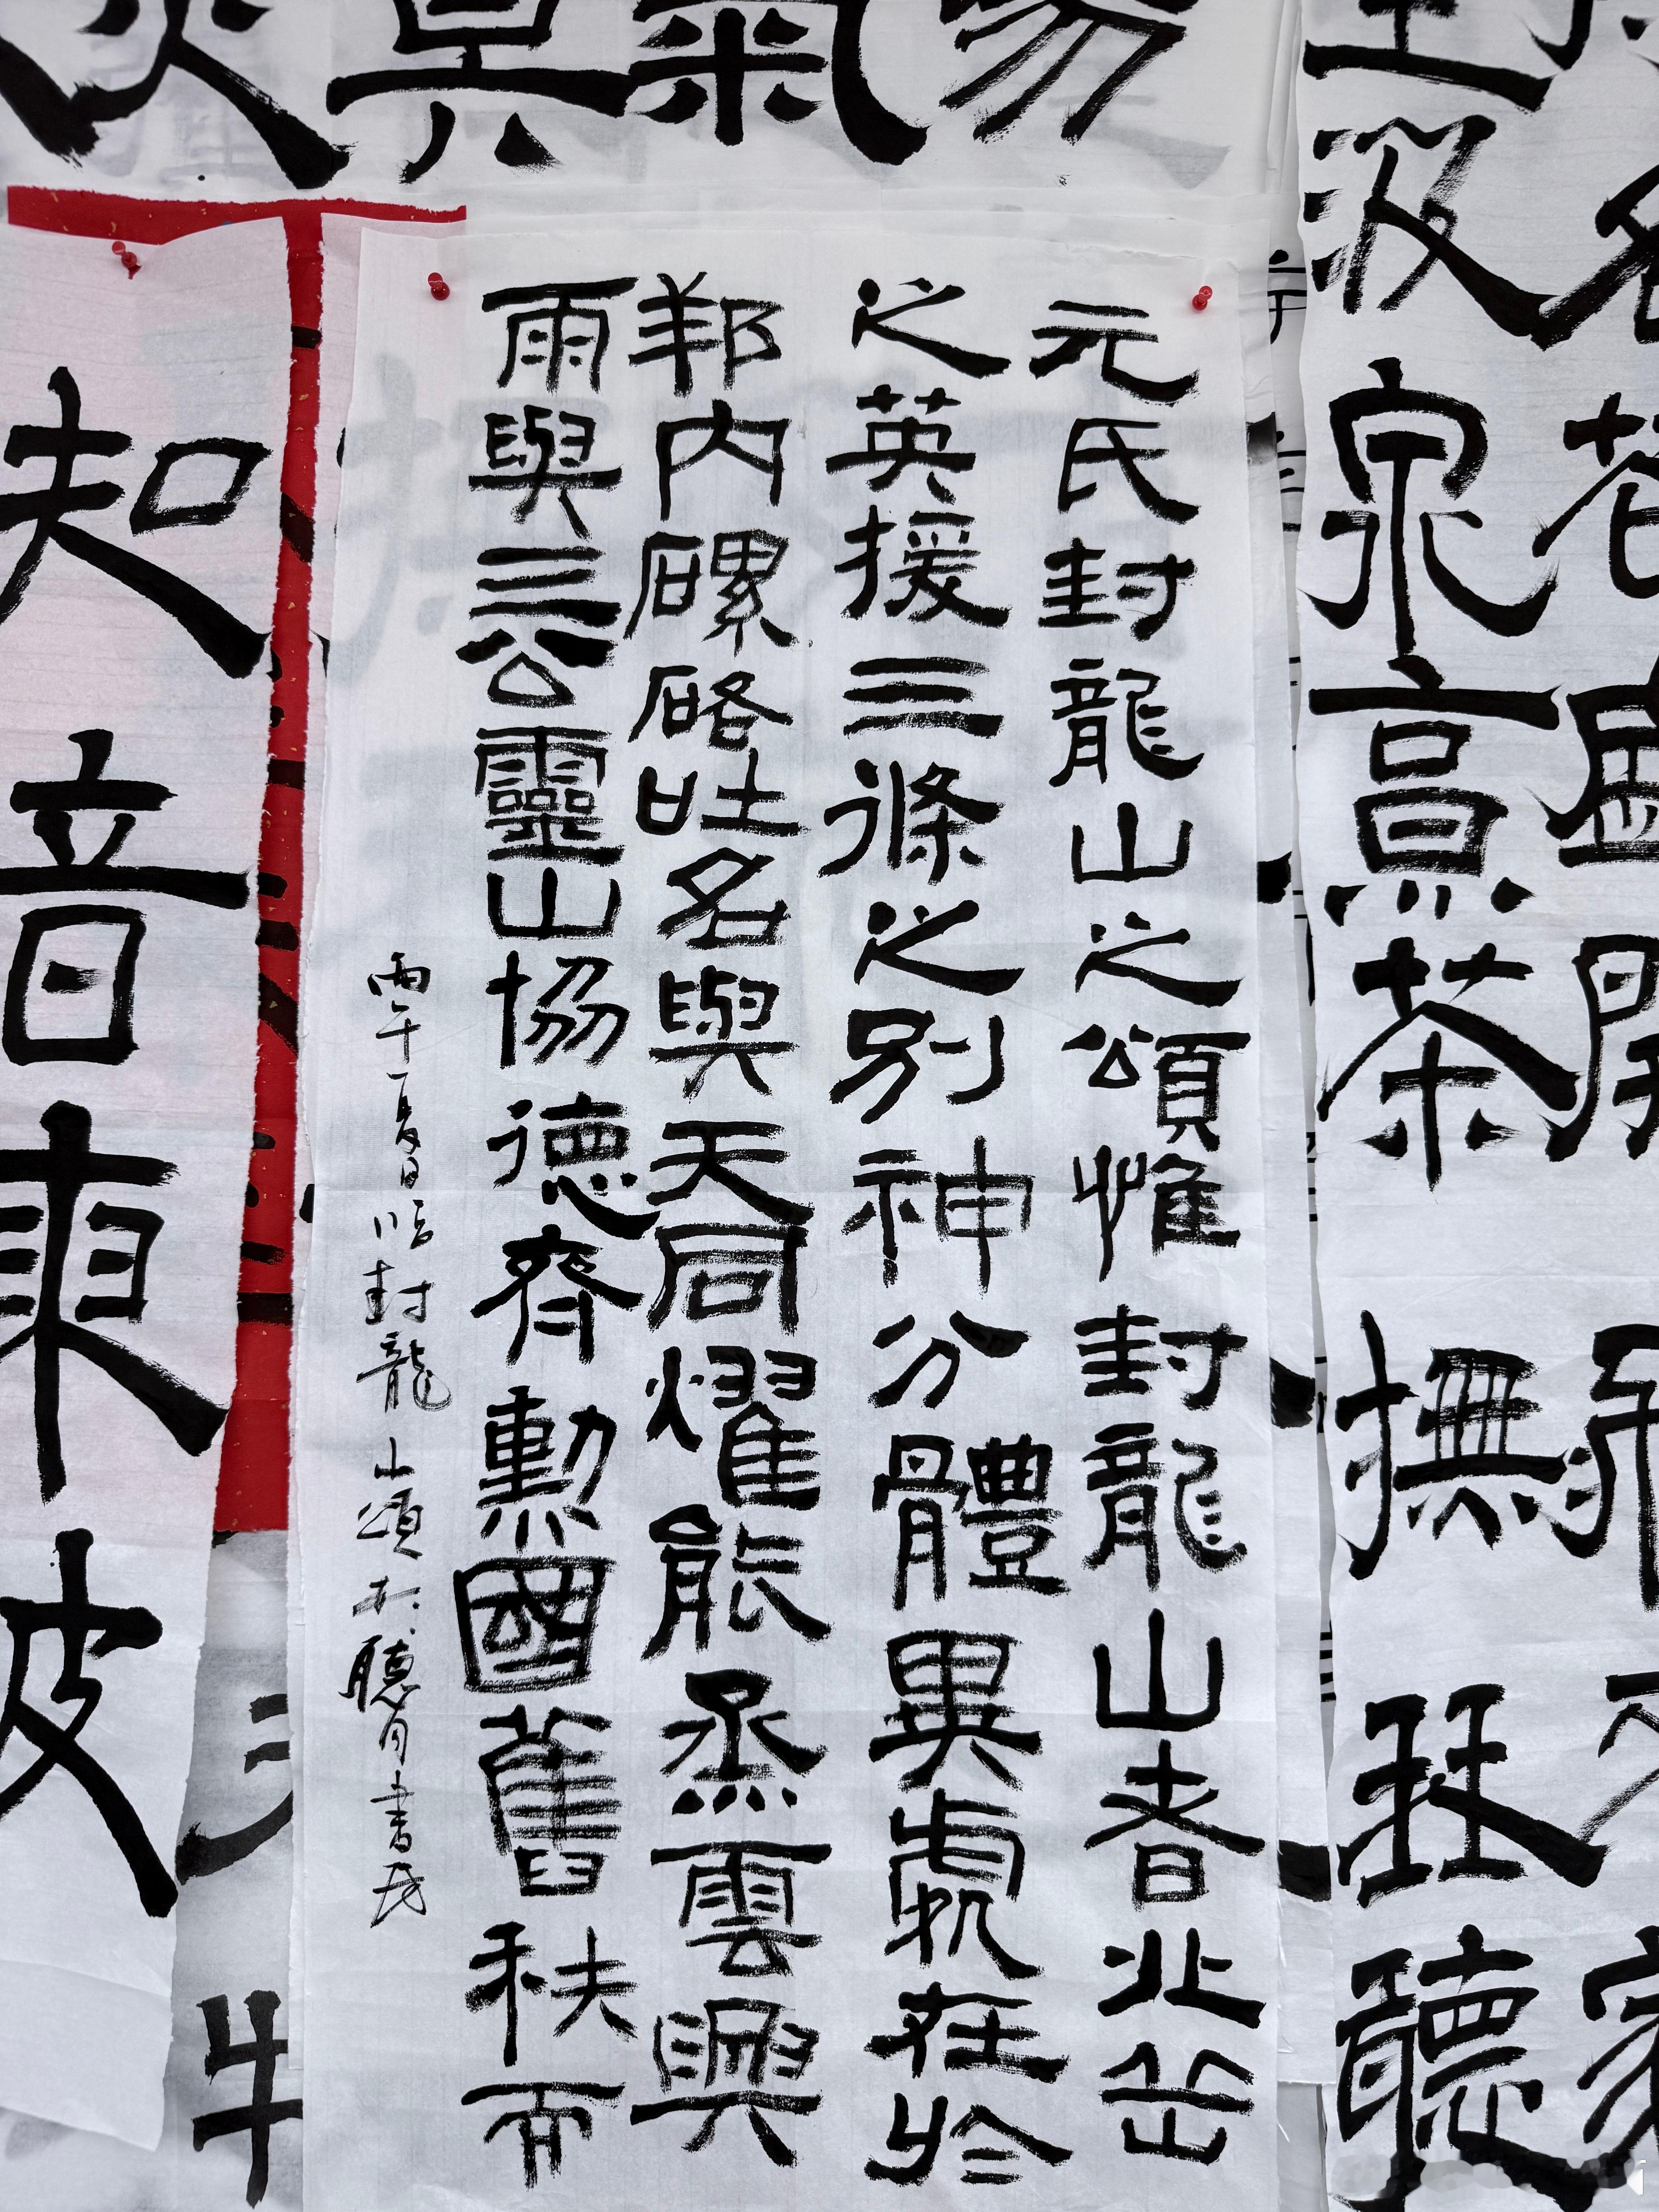 氣
汲泉烹茶 撫琴聽
元氏封龍山之頌惟封龍山者北岳
之英援三條之別神分體異處在於
邦内磥硌吐名與天同耀能烝雲興
雨與三公靈山協德齊勳國舊秩而
丙午夏日临封龍山頌於聽月書房
知音